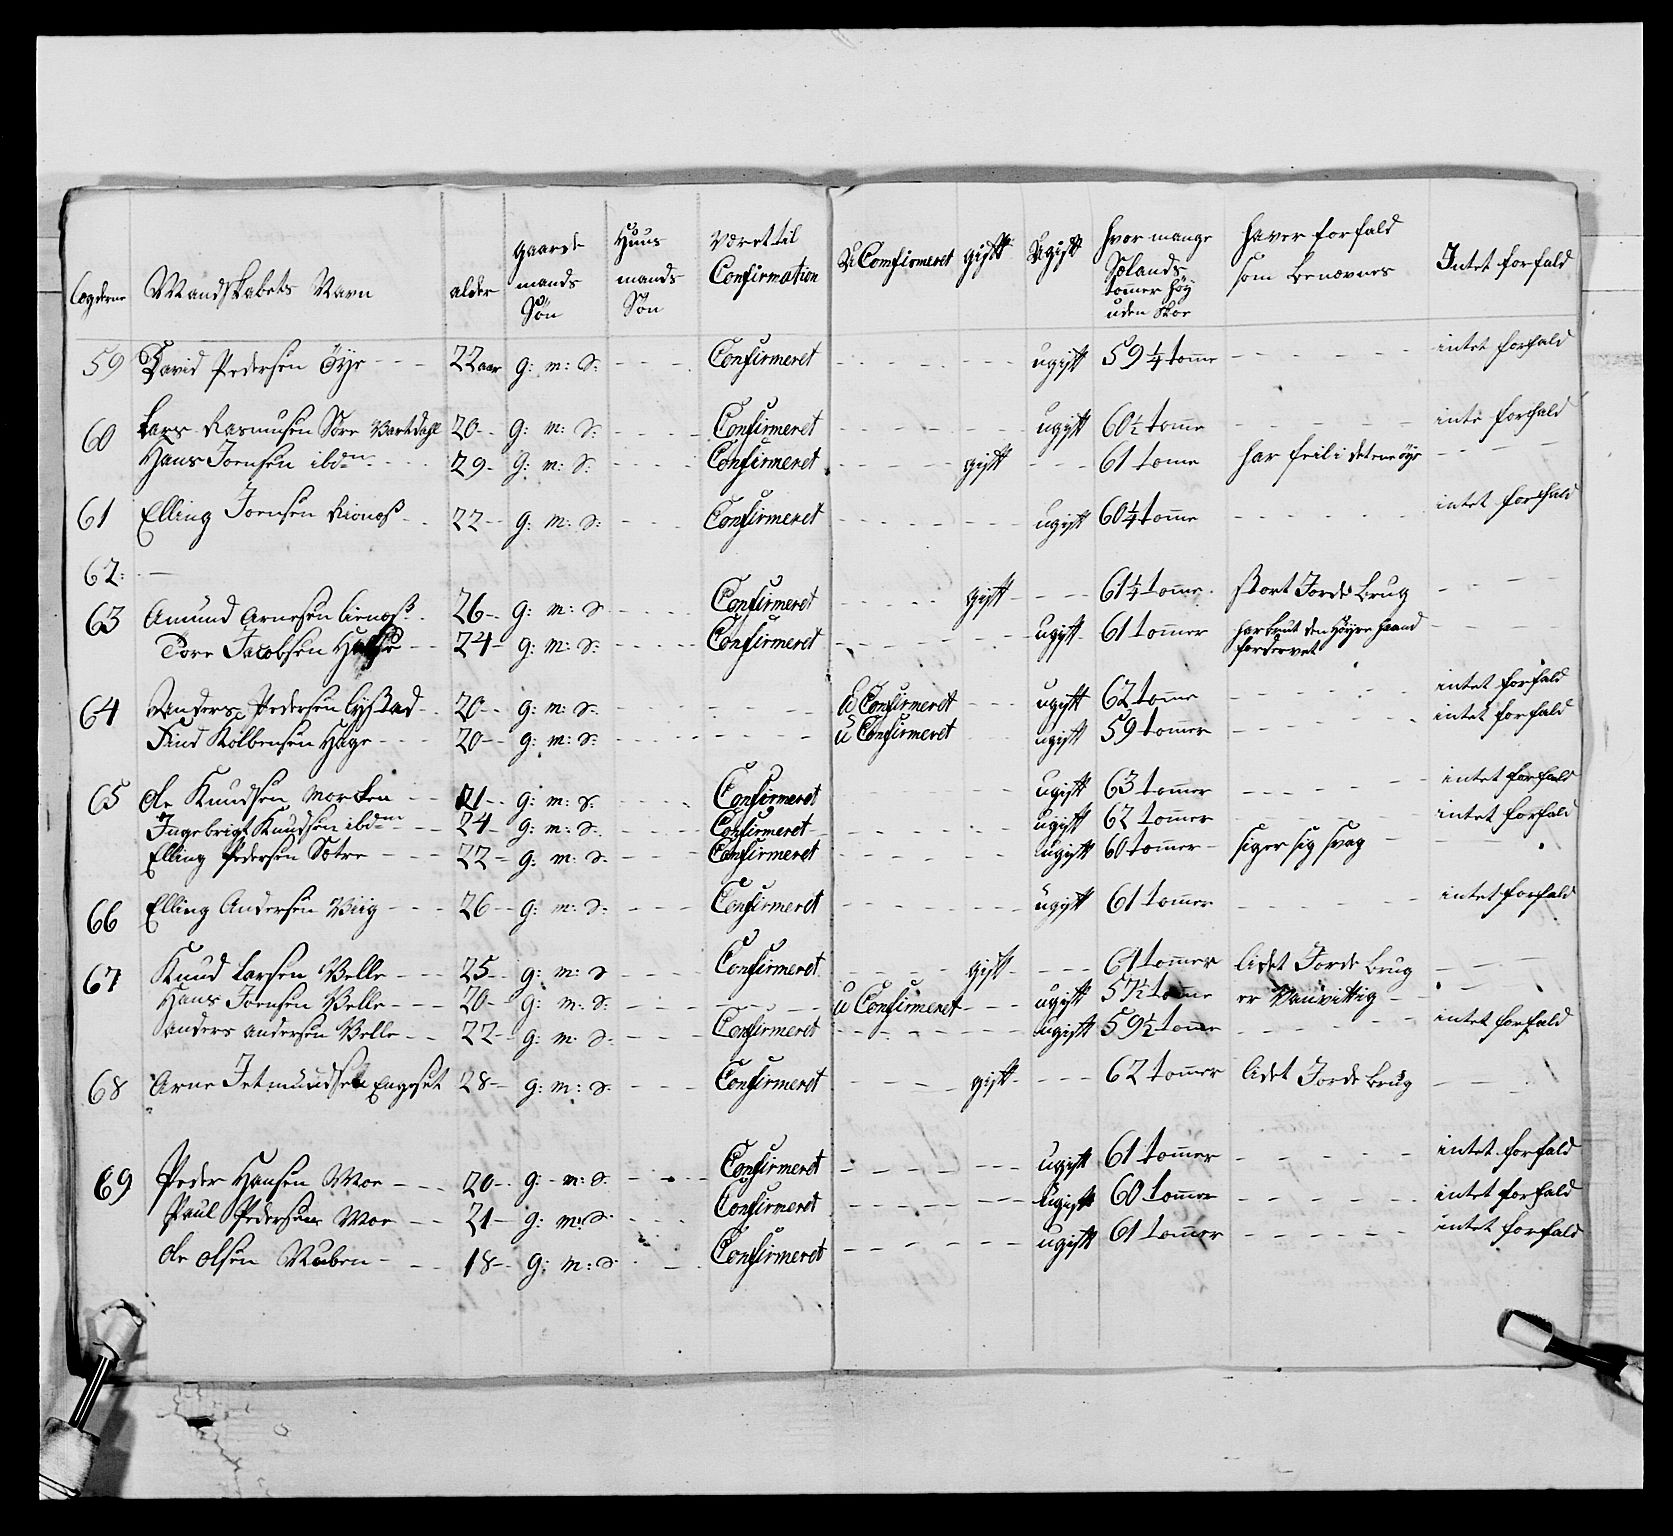 Lægderne | Mandskabets Navn | alder | gaards mands Søn | Huus mands Søn | Været til Confirmation | U Comfirmeret | gift | Ugift | hvor mange Sælands tomer høy uden Skoe | haver forfald som benævnes | Intet forfald
59 David Pedersen Öye 22 aar g: m: S: Confirmeret ugift 59 1/4 tome intet forfald
60 Lars Rasmusen Söre Vartdahl 20 g: m: S: Confirmeret ugift 60 1/2 tome inte forfald
Hans Joensen ibdn 29 g: m: S: Confirmeret gift 61 tome har feil i det ene öye
61 Elling Joensen 22 g: m: S: Confirmeret ugift 60 1/4 tome intet forfald
62:
63 Amund Arnesen 26 g: m: S Confirmeret gift 61 1/4 tome stort Jorde Brug
Tore Jacobsen 24 g: m: S: Confirmeret ugift 61 tomer har brut den Høyre haand fordervet
64 Anders Pedersen 20 g: m: S: U Confirmeret ugift 62 tome intet forfald
Knud 20 g: m: S: U Confirmeret ugift 59 tomer intet forfald
65 Ole Knudsen Morcken 21 g: m: S: Confirmeret ugift 63 tomer intet forfald
Ingebrigt Knudsen ibdm 24 g: m: S: Confirmeret ugift 62 tomer intet forfald
Elling Pedersen Sætre 22 g: m: S: Confirmeret ugift 60 tomer siger sig svag
66 Elling Andersen Viig 26 g: m: S: Confirmeret ugift 61 tomer intet forfald
67 Knud Larsen Velle 25 g: m: S Confirmeret gift 61 tomer lidet Jorde brug
Hans Joensen Velle 20 g: m: S: U Confirmeret ugift 57 1/2 tome er Vanvittig
anders andersen Velle 22 g: m: S: Confirmeret ugift 59 1/2 tome intet forfald
68 Arne Jetmundsen Engeset 28 g: m: S: Confirmeret gift 62 tomer lidet Jorde brug
69 Peder Hansen Moe 20 g: m: S: Confirmeret ugift 61 tomer intet forfald
Paul Pedersen Moe 21 g: m: S: Confirmeret ugift 60 tomer intet forfald
Ole Olsen 18 g: m: S: Confirmeret ugift 61 tomer intet forfald